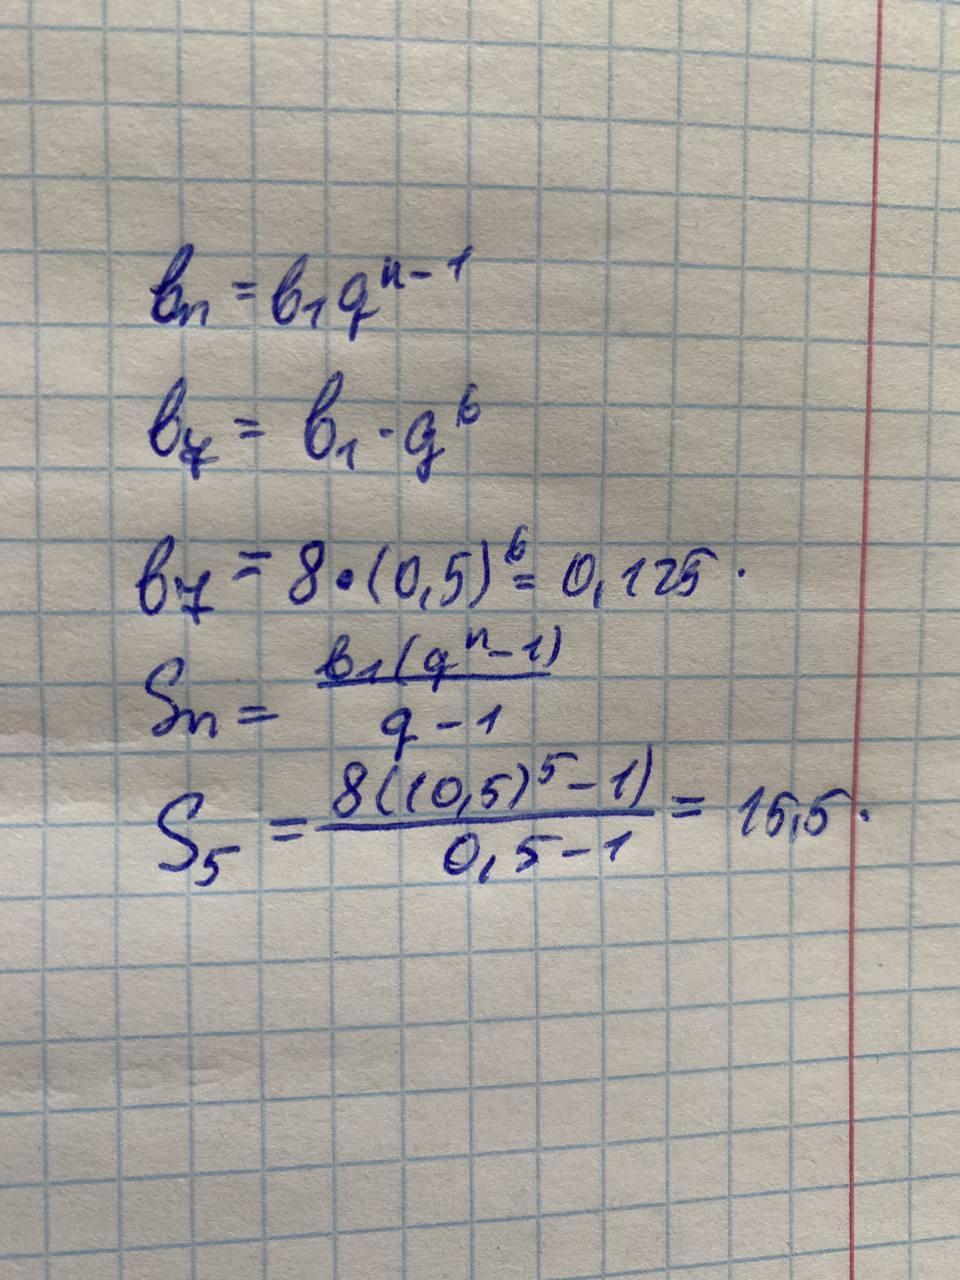 bₙ = b₁qⁿ⁻¹
b₇ = b₁ · q⁶
b₇ = 8 • (0,5)⁶ = 0,125 .
Sₙ = b₁(qⁿ-1) / q-1
S₅ = 8((0,5)⁵-1) / 0,5-1 = 15,5 .